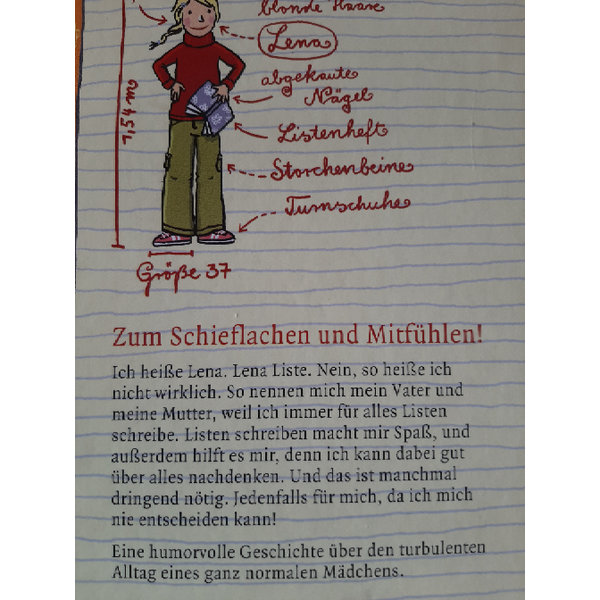 blonde Haare
Lena
abgekaute
Nägel
1,54 m
Listenheft
Storchenbeine
Turnschuhe
Größe 37
Zum Schieflachen und Mitfühlen!
Ich heiße Lena. Lena Liste. Nein, so heiße ich
nicht wirklich. So nennen mich mein Vater und
meine Mutter, weil ich immer für alles Listen
schreibe. Listen schreiben macht mir Spaß, und
außerdem hilft es mir, denn ich kann dabei gut
über alles nachdenken. Und das ist manchmal
dringend nötig. Jedenfalls für mich, da ich mich
nie entscheiden kann!
Eine humorvolle Geschichte über den turbulenten
Alltag eines ganz normalen Mädchens.